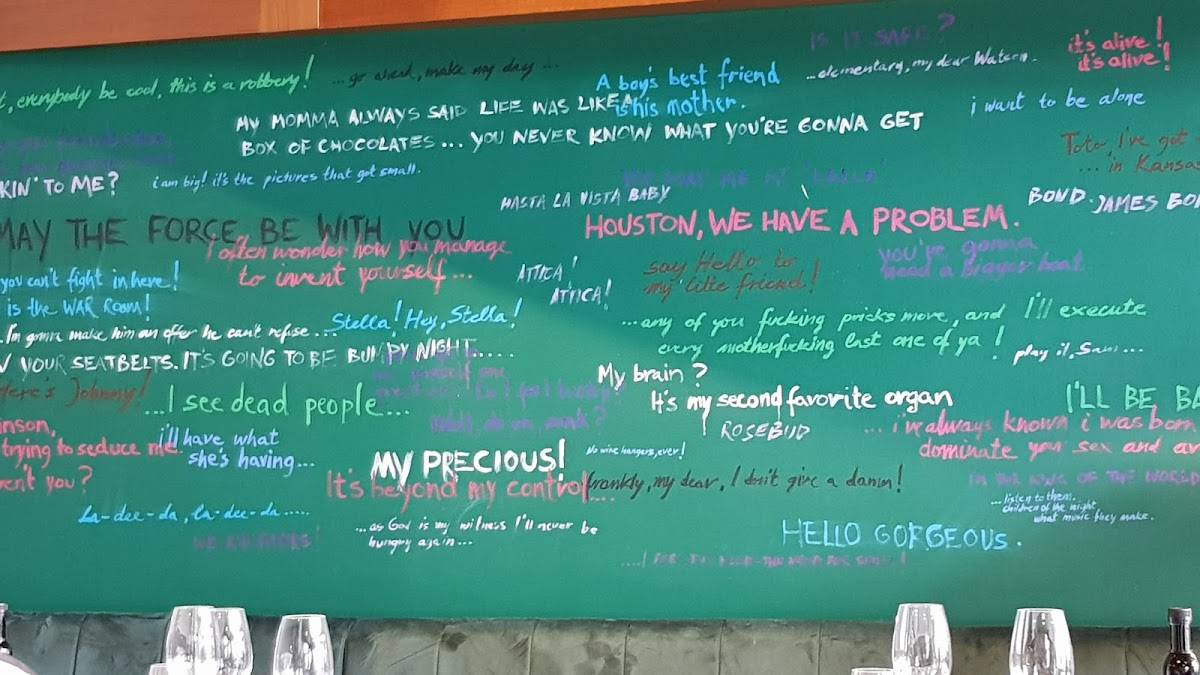 IS IT SAFE?
it's alive!
it's alive!
, everybody be cool, this is a robbery!
...go ahead, make my day...
A boy's best friend
is his mother.
...elementary, my dear Watson.
i want to be alone
MY MOMMA ALWAYS SAID LIFE WAS LIKE A
BOX OF CHOCOLATES... YOU NEVER KNOW WHAT YOU'RE GONNA GET
Toto, I've got
... in Kansas
KIN' TO ME?
i am big! it's the pictures that got small.
HASTA LA VISTA BABY
BOND. JAMES BON
MAY THE FORCE BE WITH YOU
HOUSTON, WE HAVE A PROBLEM.
I often wonder how you manage
to invent yourself...
ATTICA!
ATTICA!
say Hello to
my litle friend!
you're gonna
need a bigger boat
you can't fight in here!
is the WAR ROOM!
I'm gonna make him an offer he can't refuse...
Stella! Hey, Stella!
...any of you fucking pricks move, and I'll execute
every motherfucking last one of ya!
play it, Sam...
YOUR SEATBELTS. IT'S GOING TO BE BUMPY NIGHT.....
Here's Johnny!
...I see dead people...
My brain?
It's my second favorite organ
I'LL BE BA
ROSEBUD
inson,
trying to seduce me.
i'll have what
she's having...
...i've always known i was born
dominate your sex and av
MY PRECIOUS!
No wire hangers, ever!
It's beyond my control...
frankly, my dear, I don't give a damn!
I'M THE KING OF THE WORLD
...listen to them.
children of the night.
what music they make.
La-dee-da, la-dee-da.....
...as God is my witness I'll never be
hungry again...
HELLO GORGEOUS.